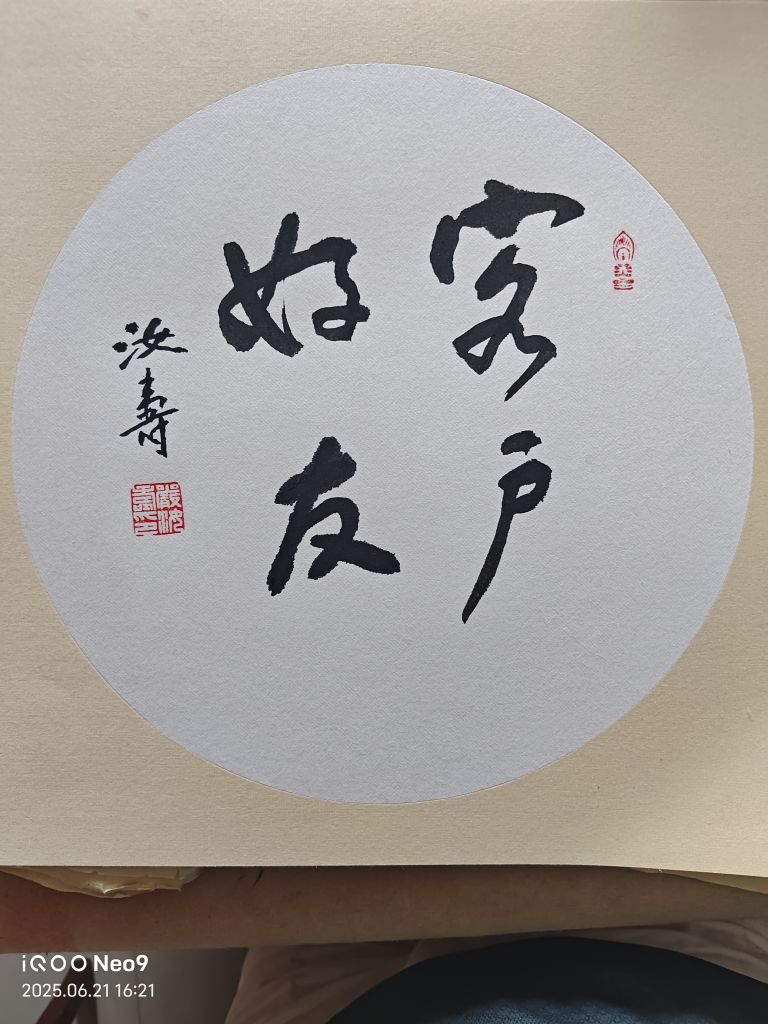 客户
好友
汝寿
嚴汝壽印
iQOO Neo9
2025.06.21 16:21